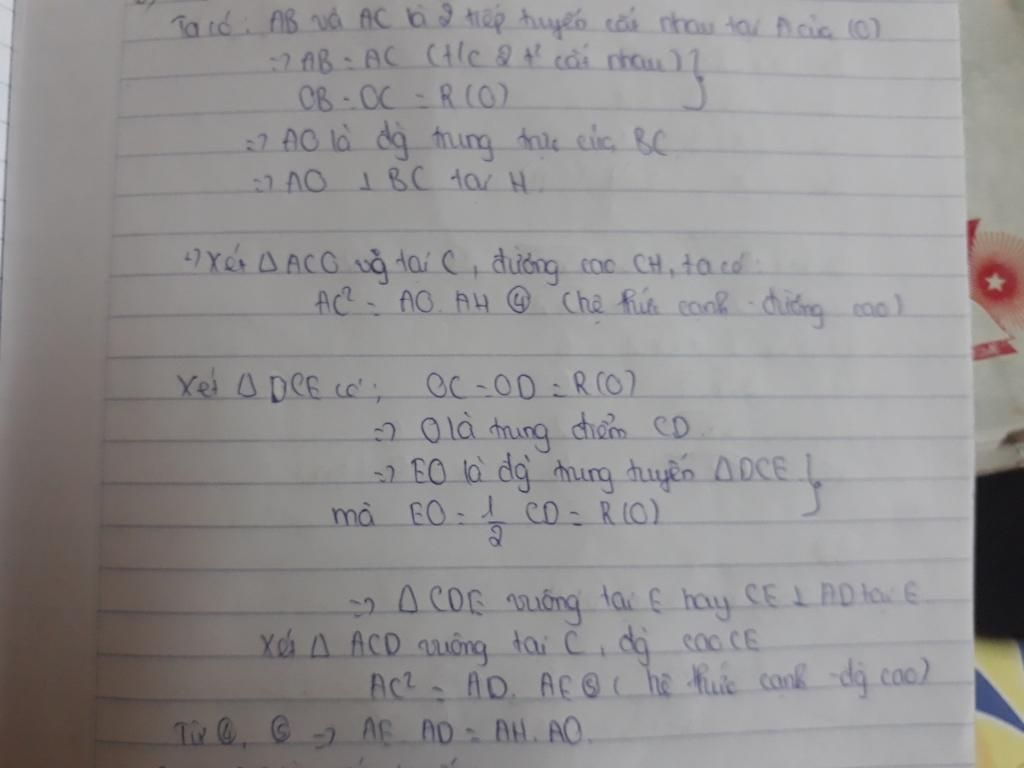 Ta có: AB và AC là 2 tiếp tuyến cắt nhau tại A của (O)
=> AB = AC (t/c 2 t² cắt nhau)
OB = OC = R(O)
=> AO là đg̀ trung trực của BC
=> AO ⊥ BC tại H.
+) Xét Δ ACO vg̀ tại C, đường cao CH, ta có:
AC² = AO. AH ④ (hệ thức cạnh - đường cao)
Xét Δ DCE có; OC = OD = R(O)
=> O là trung điểm CD.
=> EO là đg̀ trung tuyến Δ DCE
mà EO = 1/2 CD = R(O)
=> Δ CDE vuông tại E hay CE ⊥ AD tại E
Xét Δ ACD vuông tại C, đg̀ cao CE
AC² = AD. AE ⑤ ( hệ thức cạnh - đg̀ cao)
Từ ④, ⑤ => AE. AD = AH. AO.